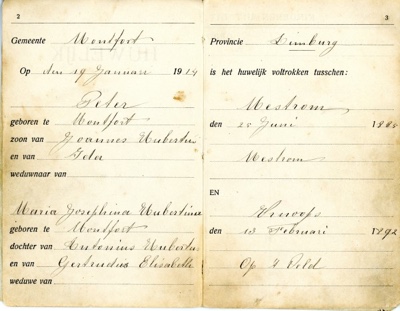 2
Gemeente Montfort
Op den 19 Januari 19
Peter
geboren te Montfort
zoon van Joannes Hubertus
en van Ida
weduwnaar van
Maria Josephina Hubertina
geboren te Montfort
dochter van Antonius Hubertus
en van Gertrudis Elisabeth
weduwe van
3
Provincie Limburg
is het huwelijk voltrokken tusschen:
Mestrom
den 25 Juni
Mestrom
EN
den 13 Februari 1892
Op 't Veld